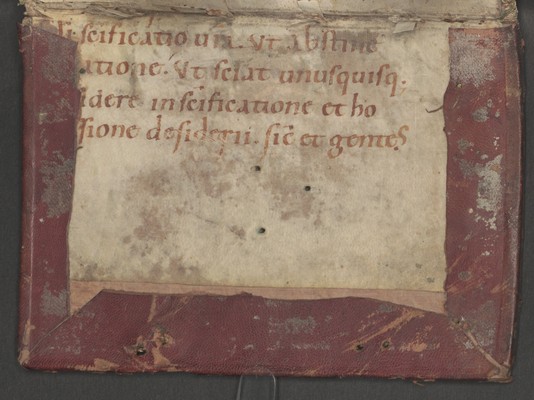 scificatio ura. Ut abstine
atione. Ut sciat unusquisq;
sidere in scificatione et ho
sione desiderii. sic̄ et gentes